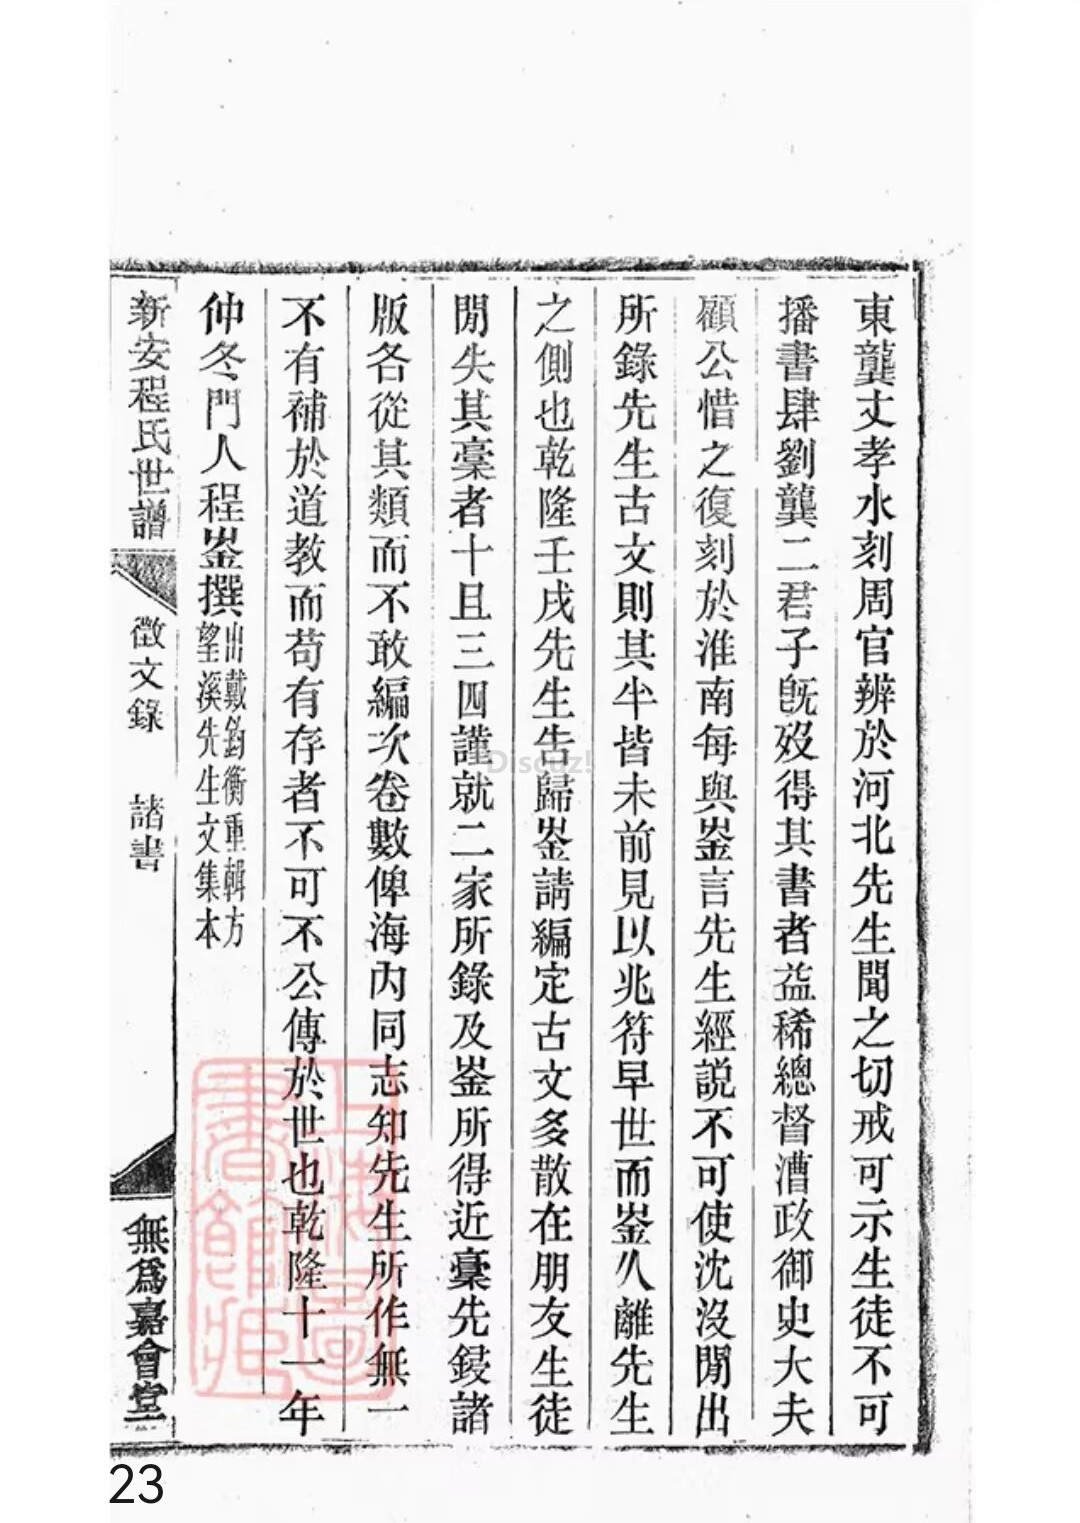 東龔丈孝水刻周官辨於河北先生聞之切戒可示生徒不可
播書肆劉龔二君子旣歿得其書者益稀總督漕政御史大夫
顧公惜之復刻於淮南每與崟言先生經説不可使沈沒閒出
所錄先生古文則其半皆未前見以兆符早世而崟久離先生
之側也乾隆壬戌先生告歸崟請編定古文多散在朋友生徒
閒失其稾者十且三四謹就二家所錄及崟所得近稾先鋟諸
版各從其類而不敢編次卷數俾海內同志知先生所作無一
不有補於道教而苟有存者不可不公傳於世也乾隆十一年
仲冬門人程崟撰
出戴鈞衡重輯方
望溪先生文集本
新安程氏世譜
徵文錄 諸書
無爲嘉會堂
上海圖書館藏
Discuz!
23